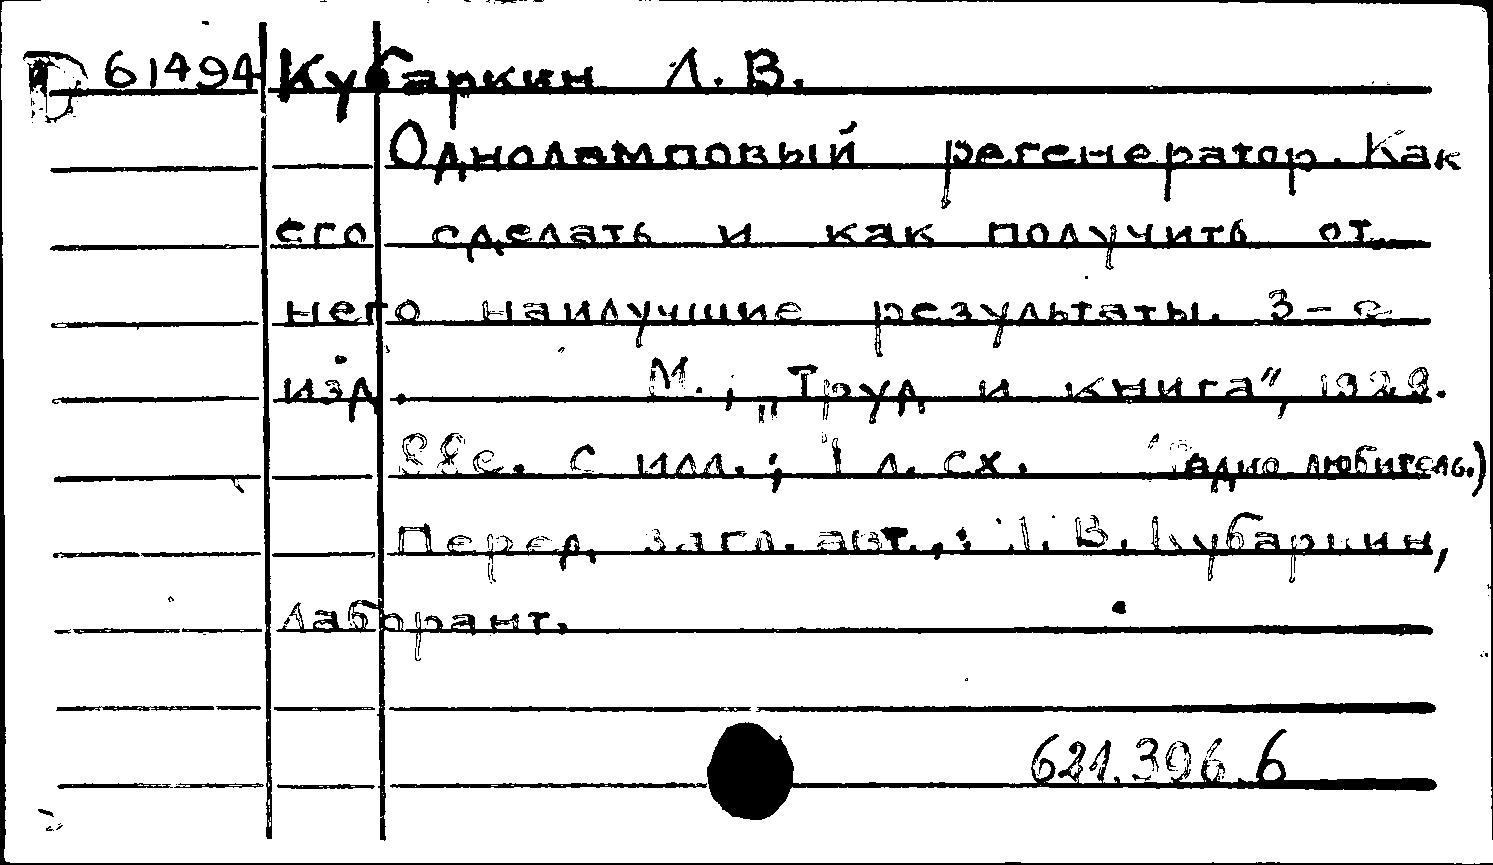 61494 Кубаркин Л. В.
Одноламповый регенератор. Как
его сделать и как получить от
него наилучшие результаты. 3-е
изд. М., „Труд и книга",
88с. с илл.; 1 л. сх. (Радиолюбитель.)
Перед загл. авт.: Л. В. Кубаркин,
лаборант.
621.396.6